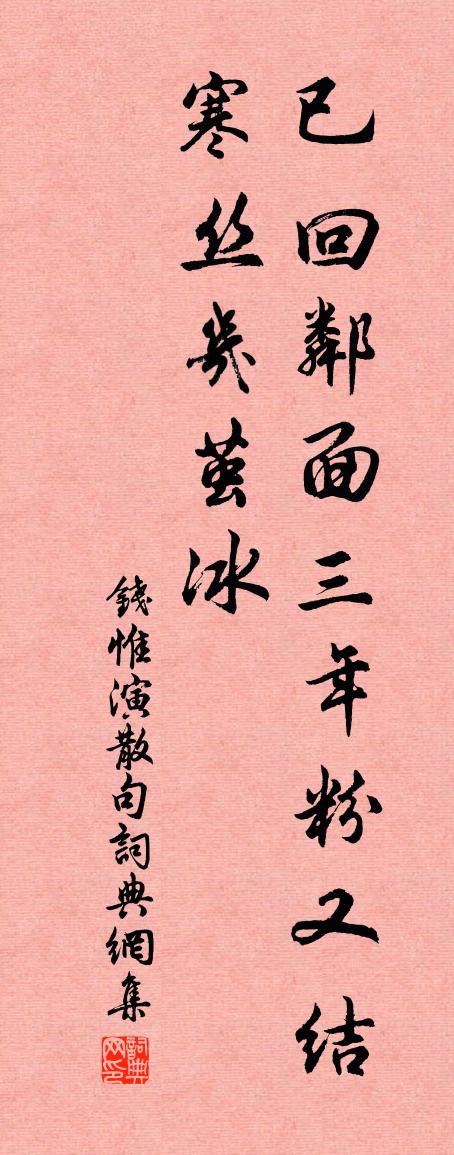 已回鄰面三年粉又结
寒丝幾茧冰
錢惟演散句詞典網集
詞典网印